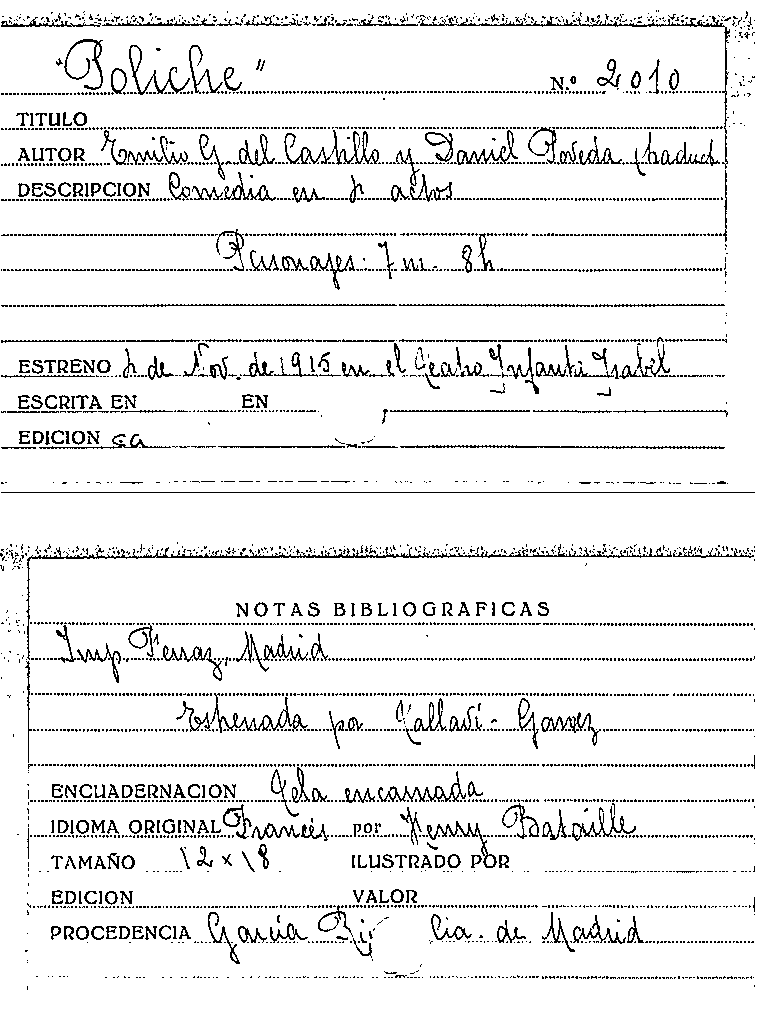 "Poliche" N.º 2010
TITULO
AUTOR Emilio G. del Castillo y Daniel Poveda (traduct
DESCRIPCION Comedia en 4 actos
Personajes: 7 m. 8 h
ESTRENO 4 de Nov. de 1915 en el Teatro Infanta Isabel
ESCRITA EN EN
EDICION
NOTAS BIBLIOGRAFICAS
Imp. Ferraz, Madrid
Estrenada por Tallaví - Gamez
ENCUADERNACION Tela encarnada
IDIOMA ORIGINAL Francés por Henry Bataille
TAMAÑO 12 x 18 ILUSTRADO POR
EDICION VALOR
PROCEDENCIA García Cia. de Madrid